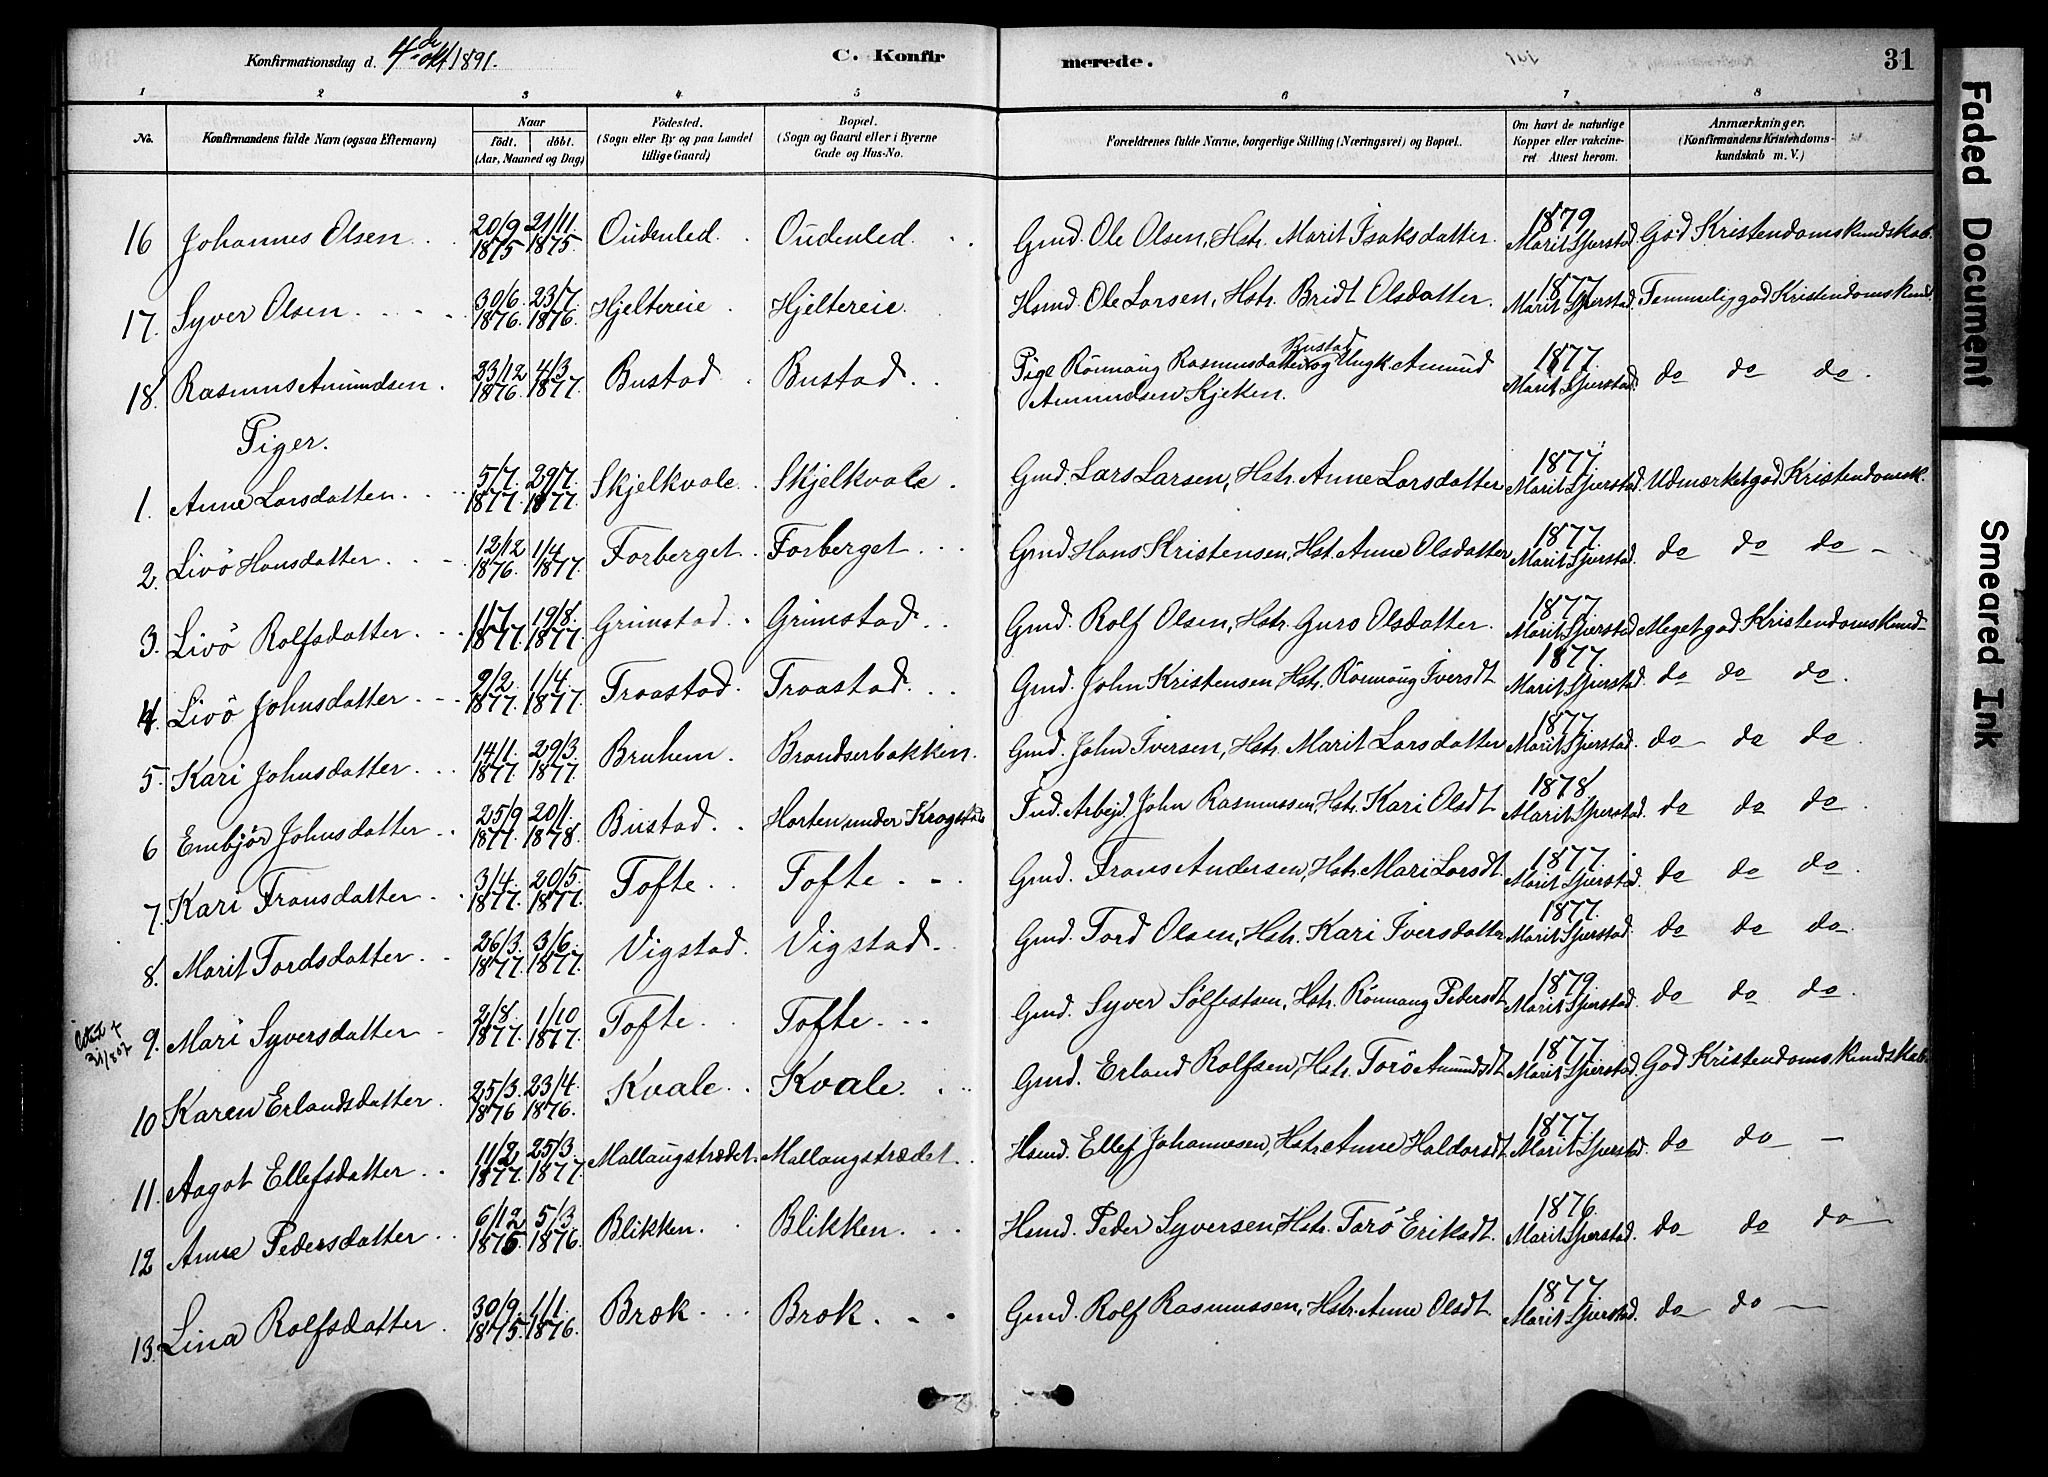 Konfirmationsdag d. 4de okt 1891. C. Konfirmerede. 31
1 2 3 4 5 6 7 8
No. Konfirmandens fulde Navn (ogsaa Efternavn) Naar födt. döbt. (Aar, Maaned og Dag) Födested. (Sogn eller By og paa Landet tillige Gaard) Bopæl. (Sogn og Gaard eller i Byerne Gade og Hus-No. Forældrenes fulde Navne, borgerlige Stilling (Næringsvei) og Bopæl. Om havt de naturlige Kopper eller vakcineret. Attest herom. Anmærkninger. (Konfirmandens Kristendomskundskab m. V.)
16 Johannes Olsen 20/9 1875 21/11 1875 Oudenled. Oudenled. Gmd. Ole Olsen, Hstr. Marit Isaksdatter. 1879 Marit Sperstad. God Kristendomskundskab.
17. Syver Olsen 30/6 1876. 23/7 1876. Hjeltereie Hjeltereie Hsmd. Ole Larsen, Hstr. Bridt Olsdatter. 1877 Marit Sperstad. Temmelig god Kristendomskund
18. Rasmus Amundsen. 23/12 1876. 4/3 1877. Bustad Bustad Pige Rönnaug Rasmusdatter Bustad og Ungk. Amund Amundsen Kjeken. 1877. Marit Sperstad. do do do.
Piger.
1. Anne Larsdatter. 5/7. 1877. 29/7. 1877. Skjelkvale Skjelkvale. Gmd. Lars Larsen, Hstr. Anne Larsdatter 1877 Marit Sperstad. Udmærket god Kristendomsk.
2. Livö Hansdatter 12/12 1876. 1/4 1877. Forberget Forberget Gmd Hans Kristensen, Hst. Anne Olsdatter 1877. Marit Sperstad. do do do —
3. Livö Rolfsdatter 1/7 1877. 19/8. 1877. Grimstad Grimstad Gmd. Rolf Olsen, Hstr. Guro Olsdatter. 1877. Marit Sperstad Meget god Kristendomskund-
4. Livö Johnsdatter 9/2. 1877. 1/4. 1877. Traastad. Traastad. Gmd. John Kristensen Hstr. Rönnaug Iversdt 1877. Marit Sperstad. do do do.
5. Kari Johnsdatter 14/1. 1877. 29/3. 1877 Bruhem. Brandserbakken. Gmd. John Iversen, Hstr. Marit Larsdatter 1877. Marit Sperstad. do do do.
6 Embjör Johnsdatter 25/9 1877. 20/1. 1878. Bustad. Horten under Kragstad Ind. Arbejd. John Rasmussen, Hstr. Kari Olsdt 1878 Marit Sperstad. do do do.
7. Kari Fransdatter 3/4. 1877. 20/5. 1877. Tofte Tofte Gmd. Frans Andersen, Hstr. Mari Larsdt. 1877. Marit Sperstad. do do do.
8. Marit Tordsdatter 26/3. 1877. 3/6. 1877. Vigstad. Vigstad Gmd. Tord Olsen, Hstr. Kari Iversdatter 1877. Marit Sperstad. do do do.
9. Mari Syversdatter 2/8. 1877. 1/10 1877. Tofte Tofte Gmd. Syver Sölfestsen, Hstr. Rönnaug Pedersdt 1879 Marit Sperstad. do do do.
10 Karen Erlandsdatter. 25/3. 1876 23/4. 1876. Kvale Kvale Gmd. Erland Rolfsen, Hstr. Torö Amundsdt 1877 Marit Sperstad. God Kristendomskundskab
11. Aagot Ellefsdatter 11/2 1877. 25/3. 1877. Mallaugstrædet. Mallaugstrædet Hsmd. Ellef Johannesen, Hstr. Anne Haldorsdt. 1877. Marit Sperstad. do do —
12 Anne Pedersdatter 6/12 1875 5/3 1876. Blikken. Blikken. Hsmd. Peder Syversen, Hstr. Torö Eriksdt. 1876. Marit Sperstad. do do do
13. Lina Rolfsdatter. 30/9. 1875. 1/1. 1876. Bræk Bræk. Gmd. Rolf Rasmussen, Hstr. Anne Olsdt 1877. Marit Sperstad. do do —
Faded Document
Smeared Ink